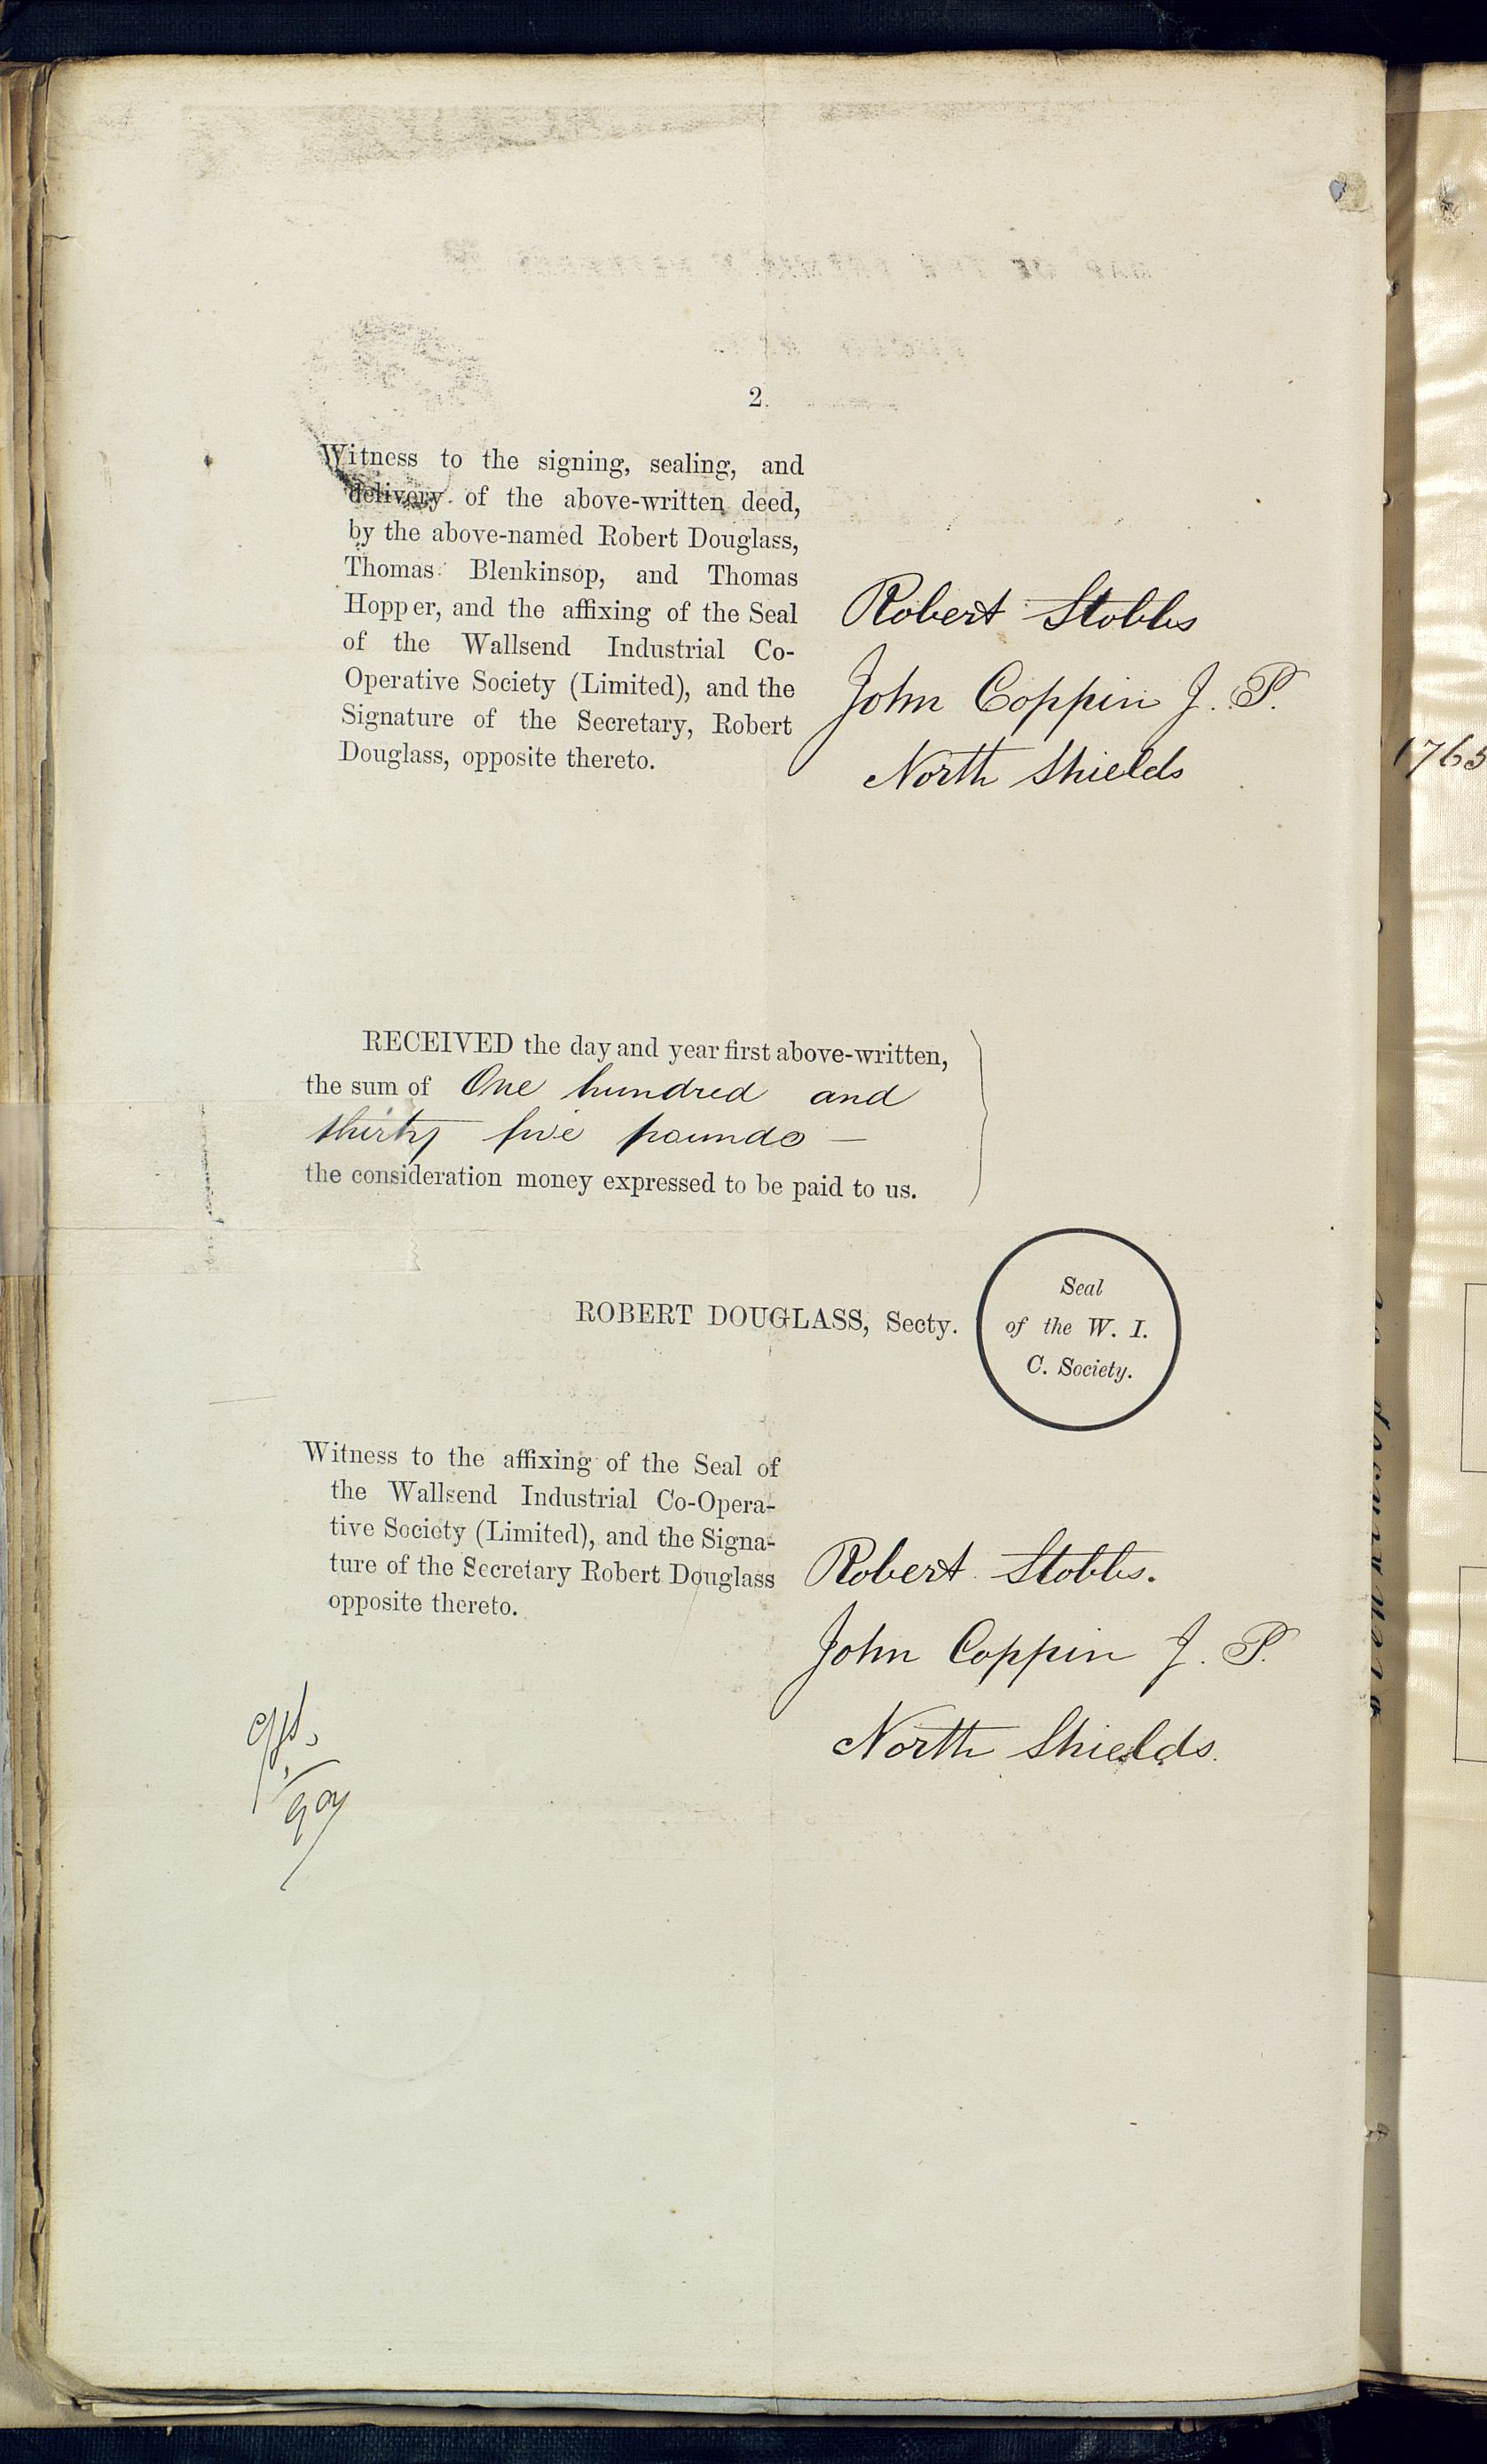 2.
Witness to the signing, sealing, and
delivery of the above-written deed,
by the above-named Robert Douglass,
Thomas Blenkinsop, and Thomas
Hopper, and the affixing of the Seal
of the Wallsend Industrial Co-
Operative Society (Limited), and the
Signature of the Secretary, Robert
Douglass, opposite thereto.
Robert Stobbs
John Coppin J. P.
North Shields
1765
RECEIVED the day and year first above-written,
the sum of One hundred and
thirty five pounds —
the consideration money expressed to be paid to us.
ROBERT DOUGLASS, Secty.
Seal
of the W. I.
C. Society.
Witness to the affixing of the Seal of
the Wallsend Industrial Co-Opera-
tive Society (Limited), and the Signa-
ture of the Secretary Robert Douglass
opposite thereto.
Robert Stobbs.
John Coppin J. P.
North Shields.